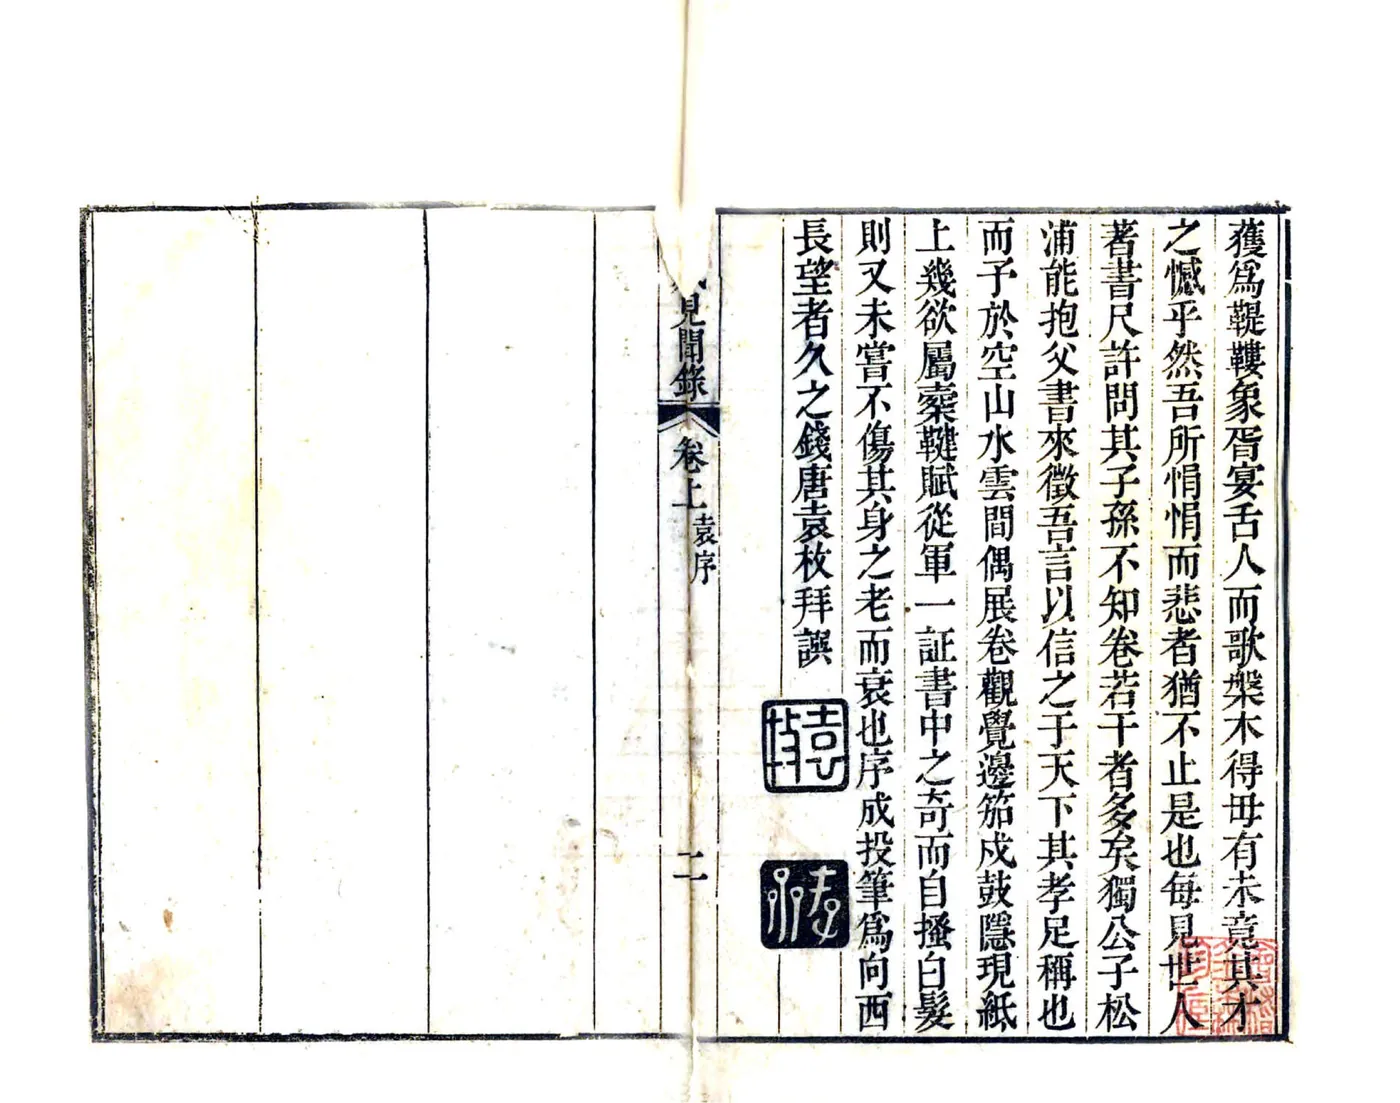 獲爲鞮鞻象胥宴舌人而歌槃木得毋有未竟其才
之憾乎然吾所悁悁而悲者猶不止是也每見世人
著書尺許問其子孫不知卷若干者多矣獨公子松
浦能抱父書來徵吾言以信之于天下其孝足稱也
而予於空山水雲間偶展卷觀覺邊笳戍鼓隱現紙
上幾欲屬櫜鞬賦從軍一証書中之奇而自搔白髮
則又未嘗不傷其身之老而衰也序成投筆爲向西
長望者久之錢唐袁枚拜譔
袁枚
見聞錄
卷上
袁序
二